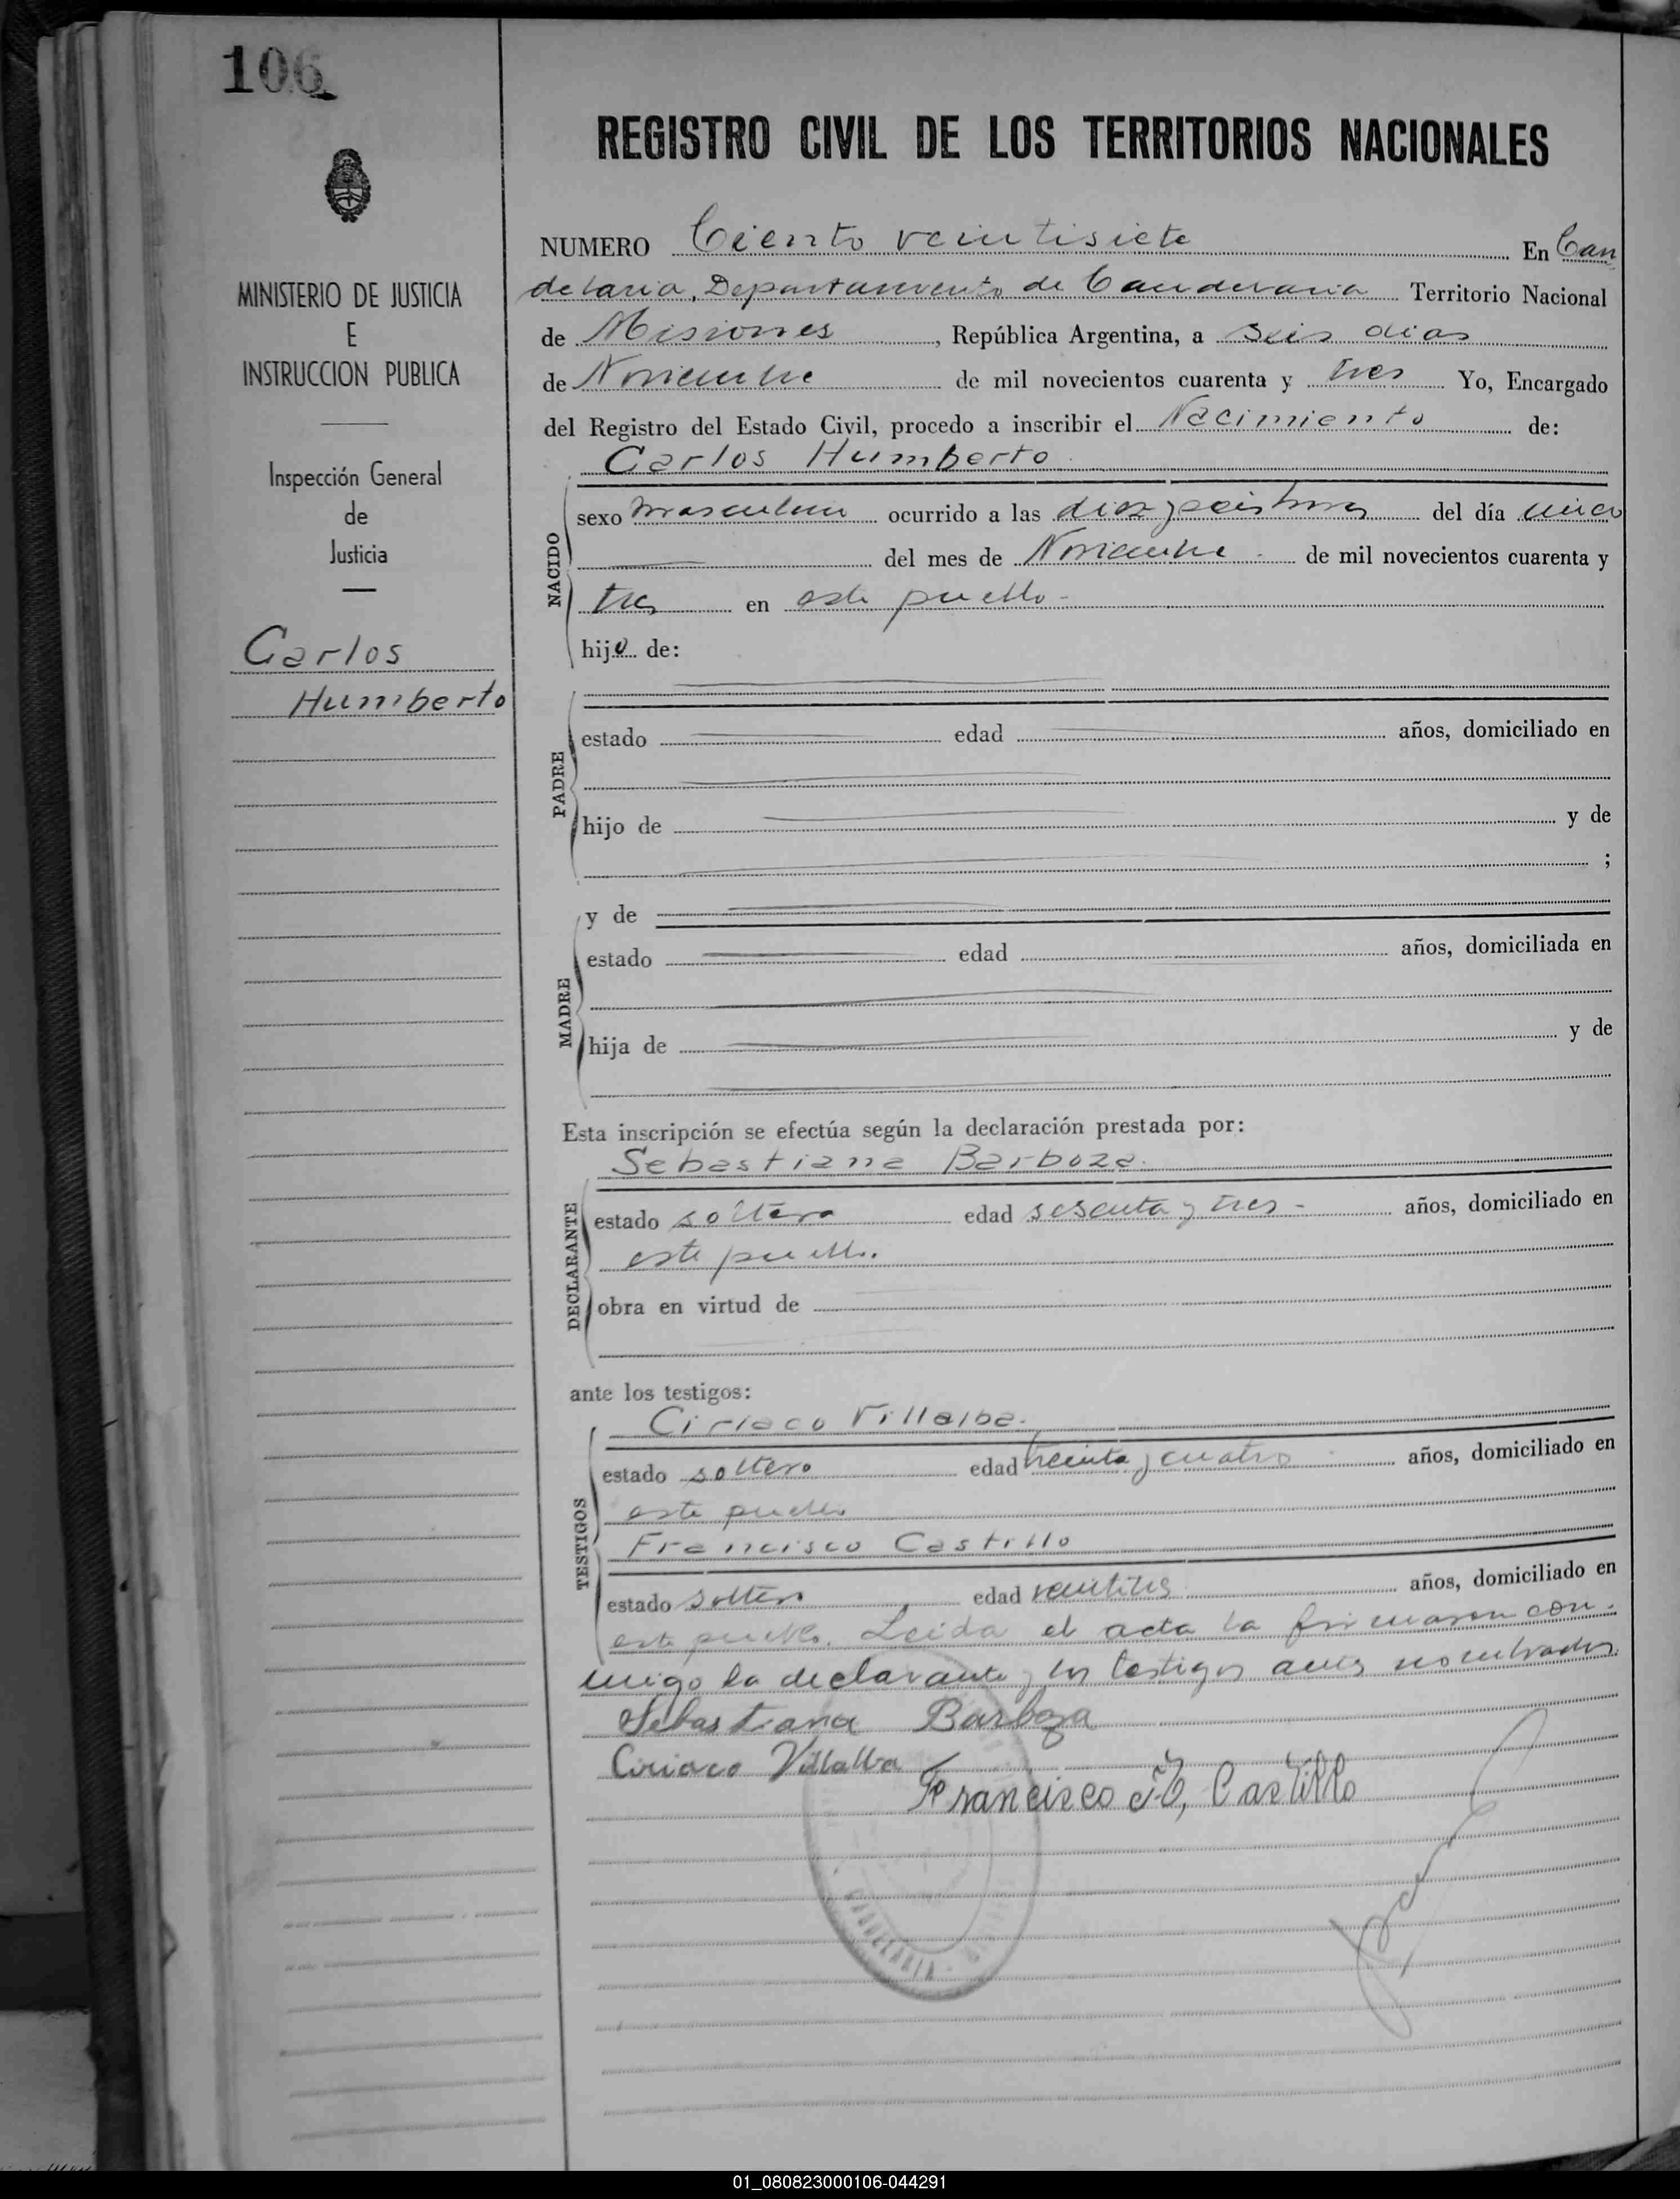 106
REGISTRO CIVIL DE LOS TERRITORIOS NACIONALES
MINISTERIO DE JUSTICIA
E
INSTRUCCION PUBLICA
Inspección General
de
Justicia
Carlos
Humberto
NUMERO Ciento veintisiete En Can
delaria, Departamento de Candelaria Territorio Nacional
de Misiones, República Argentina, a seis dias
de Noviembre de mil novecientos cuarenta y tres Yo, Encargado
del Registro del Estado Civil, procedo a inscribir el Nacimiento de:
Carlos Humberto
NACIDO
sexo masculino ocurrido a las diez y seis horas del día
del mes de Noviembre de mil novecientos cuarenta y
tres en este pueblo
hijo de:
PADRE
estado edad años, domiciliado en
hijo de y de
;
y de
MADRE
estado edad años, domiciliada en
hija de y de
Esta inscripción se efectúa según la declaración prestada por:
Sebastiana Barboza.
DECLARANTE
estado soltera edad sesenta y tres años, domiciliado en
este pueblo.
obra en virtud de
ante los testigos:
Ciriaco Villalba.
TESTIGOS
estado soltero edad treinta y cuatro años, domiciliado en
este pueblo
Francisco Castillo
estado soltero edad veintitres años, domiciliado en
este pueblo. Leida el acta la firmaron con
migo la declarante y los testigos antes nombrados
Sebastiana Barboza
Ciriaco Villalba
Francisco Castillo
CANDELARIA
01_080823000106-044291